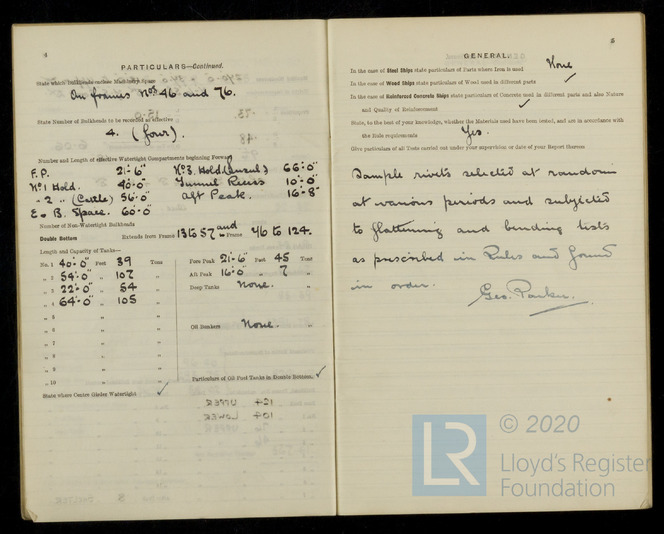 4
PARTICULARS—Continued.
State which Bulkheads enclose Machinery Space
On frames Nos 46 and 76.
State Number of Bulkheads to be recorded as effective
4. (four).
Number and Length of effective Watertight Compartments beginning Forward
F.P. 21'-6" No 3. Hold (Insul.) 66'-0"
No 1 Hold. 40'-0" Tunnel Recess 10'-0"
- 2 " (Cattle) 56'-0" Aft Peak. 16'-8"
E & B. Space. 60'-0"
Number of Non-Watertight Bulkheads
Double Bottom Extends from Frame 13 to 57 and to Frame 76 to 124.
Length and Capacity of Tanks—
No. 1 40'-0" Feet 39 Tons Fore Peak 21'-6" Feet 45 Tons
" 2 54'-0" " 107 " Aft Peak 16'-0" " 7 "
" 3 22'-0" " 54 " Deep Tanks None. "
" 4 64'-0" " 105 "
" 5 " "
" 6 " " Oil Bunkers None. "
" 7 " "
" 8 " "
" 9 " "
" 10 " " Particulars of Oil Fuel Tanks in Double Bottom. ✓
State where Centre Girder Watertight ✓
5
GENERAL.
In the case of Steel Ships state particulars of Parts where Iron is used None
In the case of Wood Ships state particulars of Wood used in different parts ✓
In the case of Reinforced Concrete Ships state particulars of Concrete used in different parts and also Nature
and Quality of Reinforcement ✓
State, to the best of your knowledge, whether the Materials used have been tested, and are in accordance with
the Rule requirements Yes.
Give particulars of all Tests carried out under your supervision or date of your Report thereon
Sample rivets selected at random
at various periods and subjected
to flattening and bending tests
as prescribed in Rules and found
in order. Geo. Parker.
LR
© 2020
Lloyd's Register
Foundation